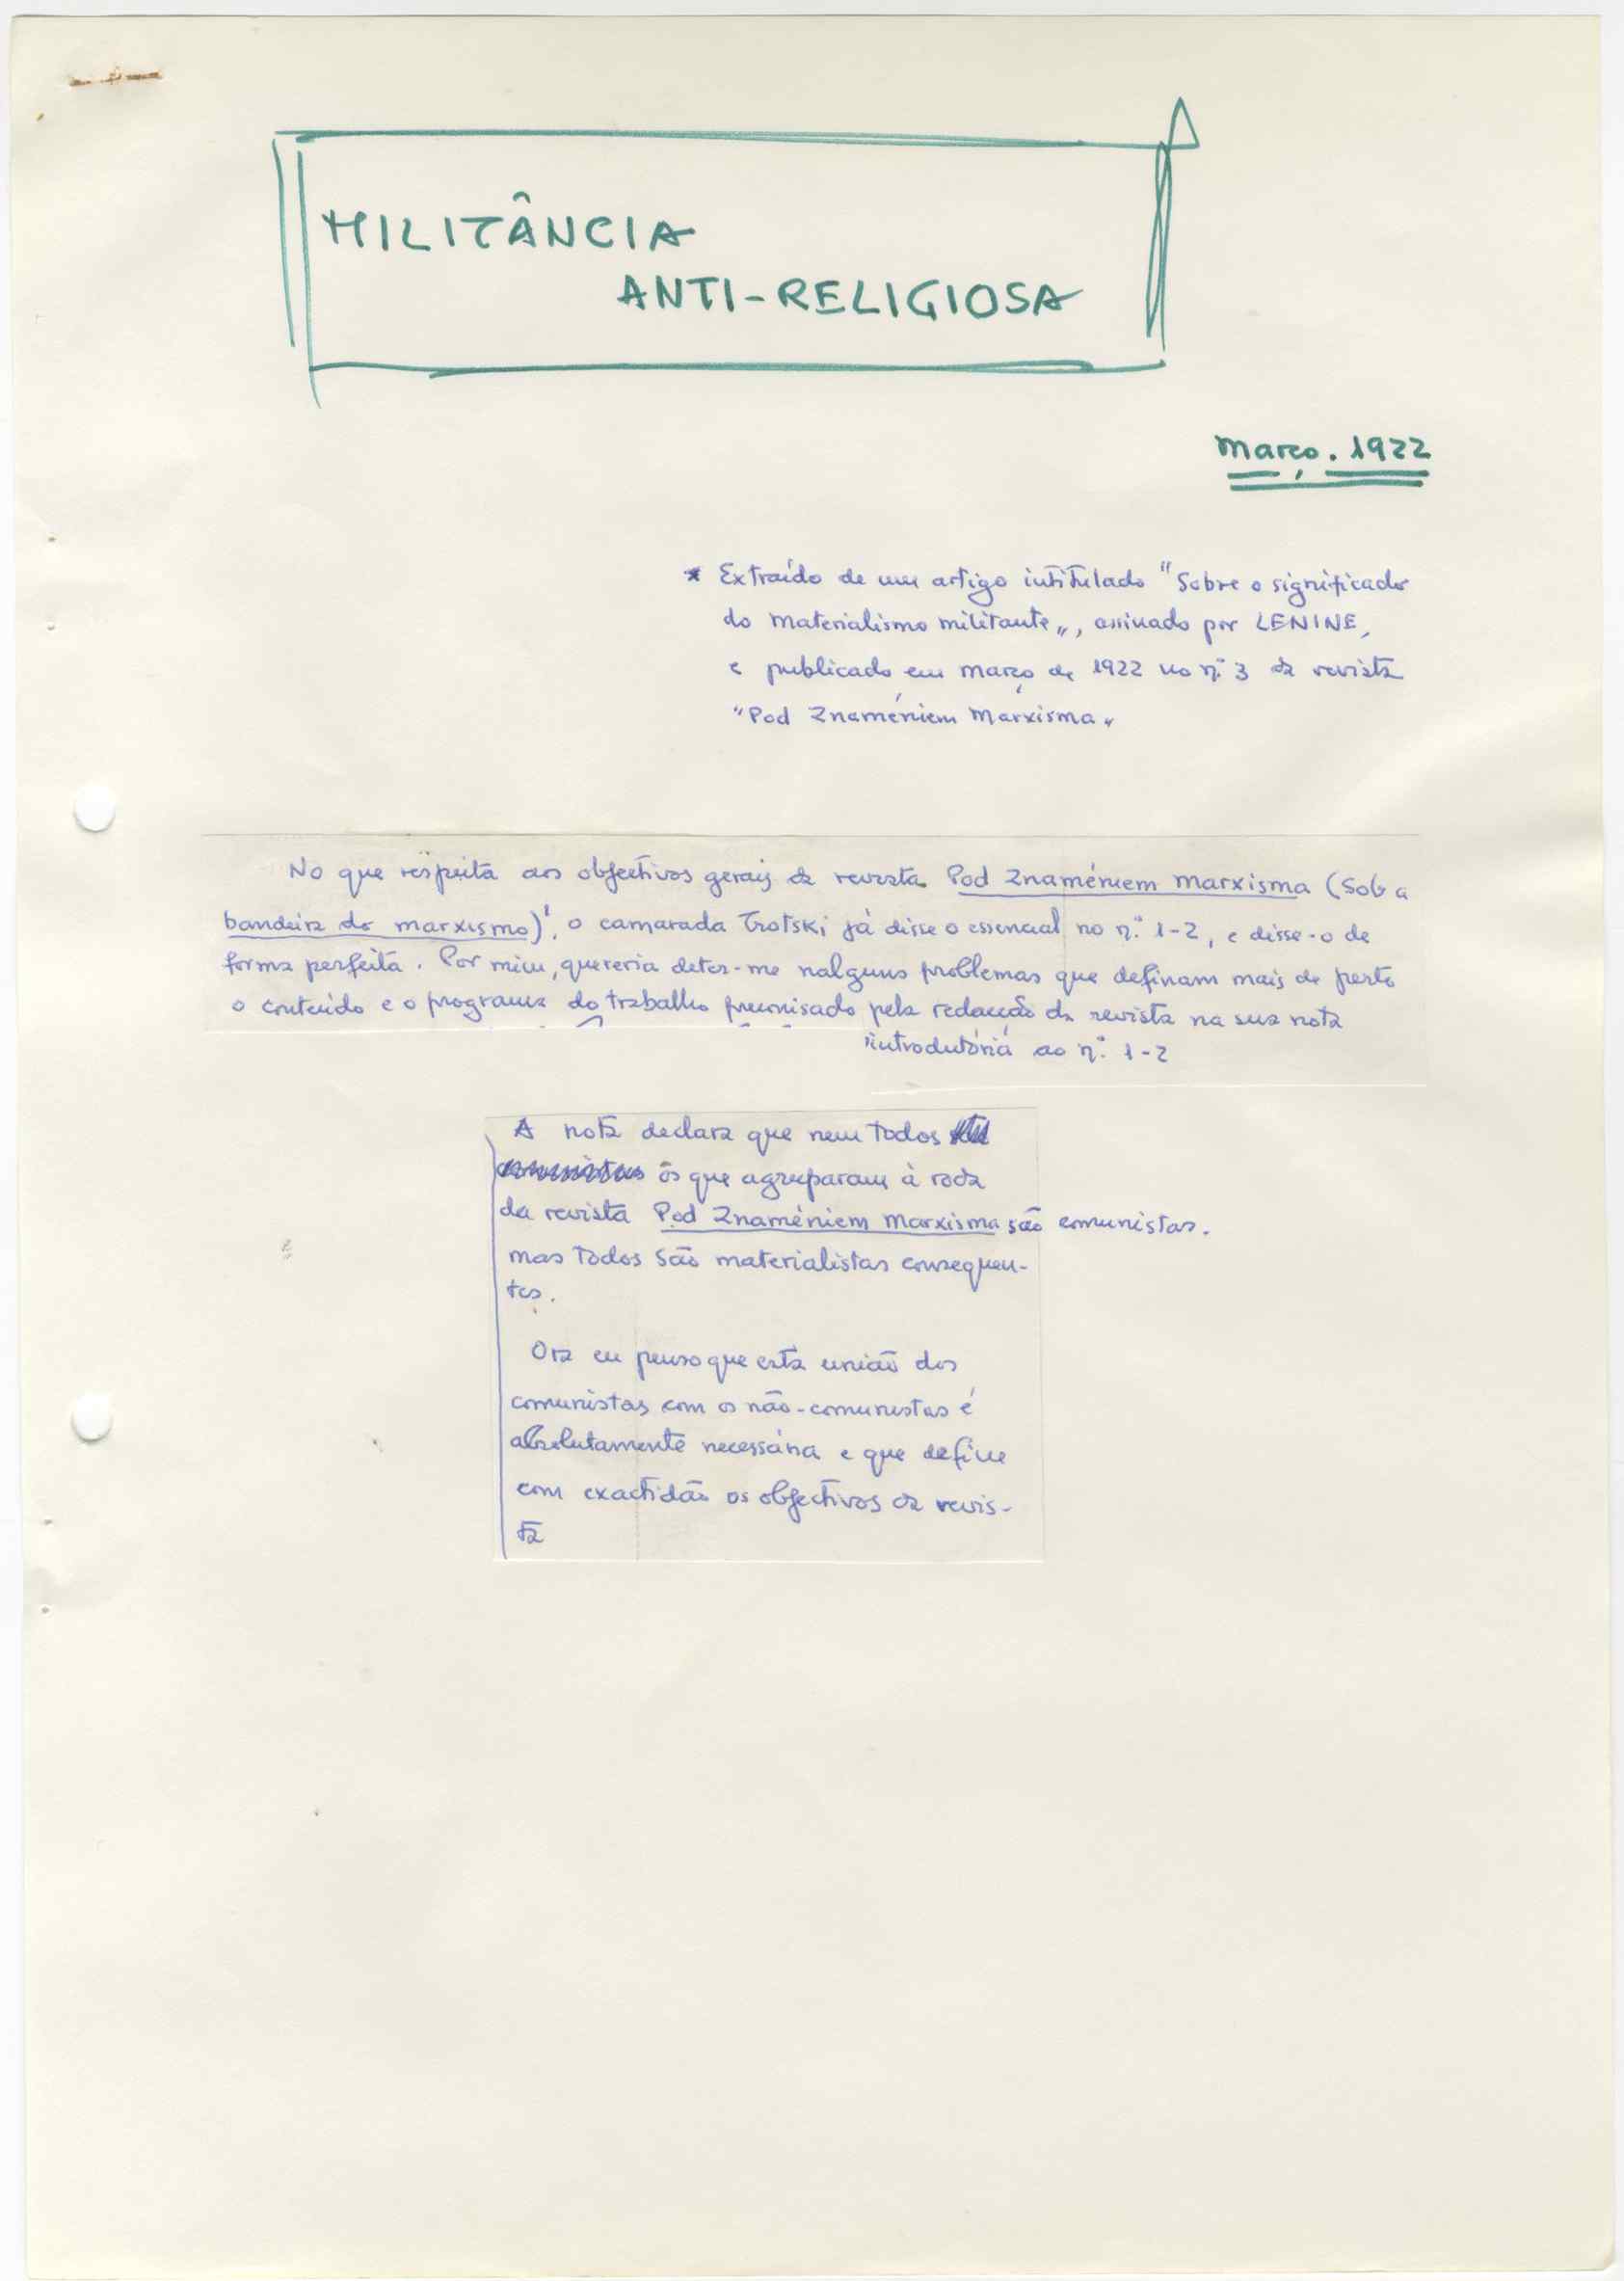 MILITÂNCIA
ANTI-RELIGIOSA
Março. 1922
* Extraído de um artigo intitulado "Sobre o significado
do materialismo militante", assinado por LENINE,
e publicado em março de 1922 no nº 3 da revista
"Pod Znaméniem Marxisma"
No que respeita aos objectivos gerais da revista Pod Znaméniem Marxisma (Sob a
bandeira do marxismo)¹, o camarada Trotski já disse o essencial no nº 1-2, e disse-o de
forma perfeita. Por mim, quereria deter-me nalguns problemas que definam mais de perto
o conteúdo e o programa do trabalho preconisado pela redacção da revista na sua nota
introdutória ao nº 1-2
A nota declara que nem todos
os que agruparam à roda
da revista Pod Znaméniem Marxisma são comunistas.
mas todos são materialistas consequen-
tes.
Ora eu penso que esta união dos
comunistas com os não-comunistas é
absolutamente necessária e que define
com exactidão os objectivos da revis-
ta